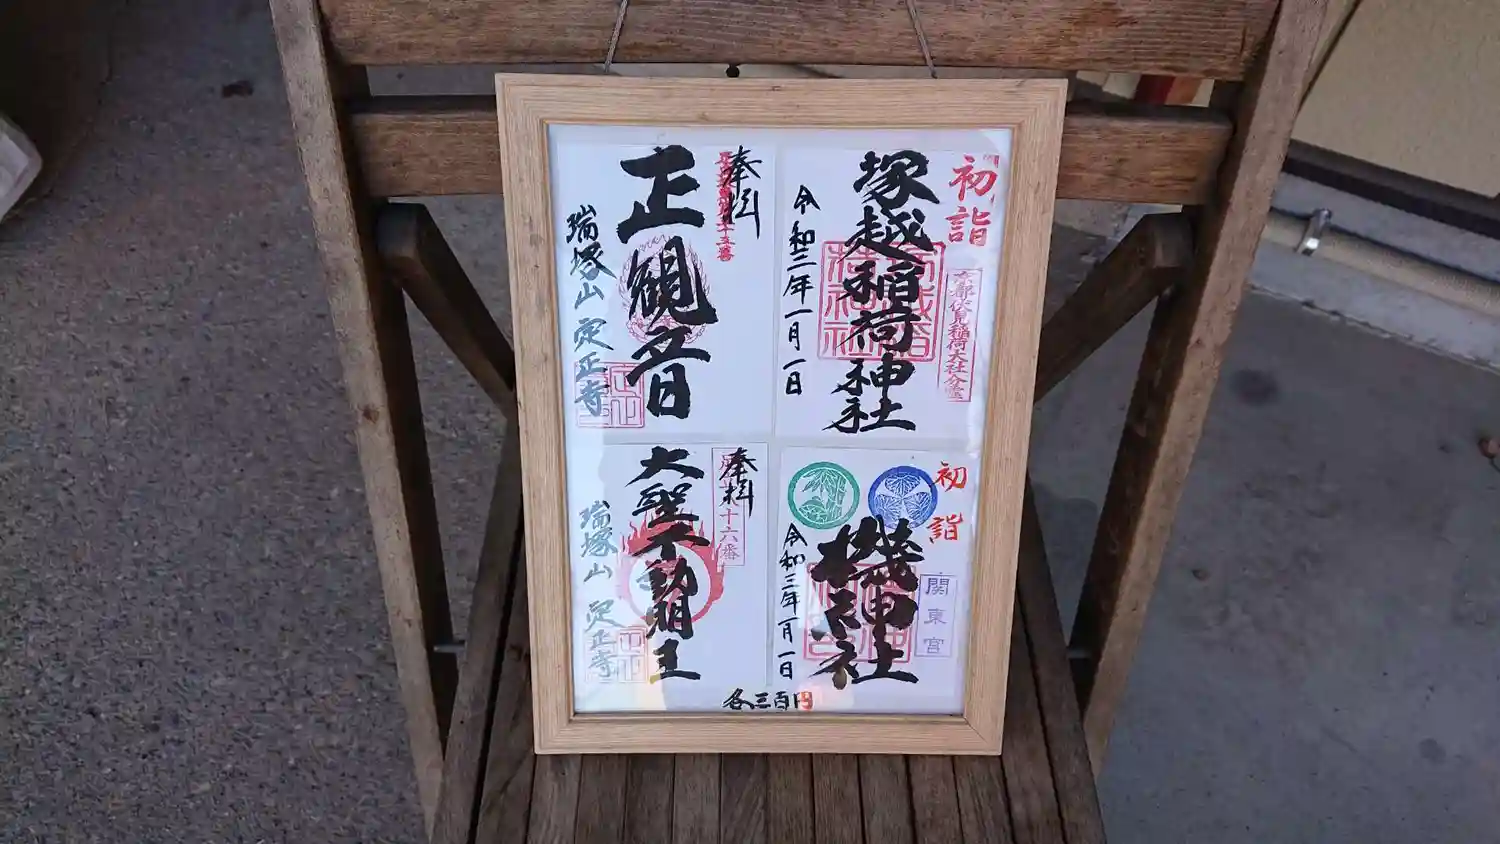 初詣
京都伏見稲荷大社分霊
塚越稲荷神社
令和三年一月一日
奉拝
正観音
瑞塚山 定正寺
初詣
関東宮
機神社
令和三年一月一日
奉拝
十六番
大聖不動明王
瑞塚山 定正寺
各三百円